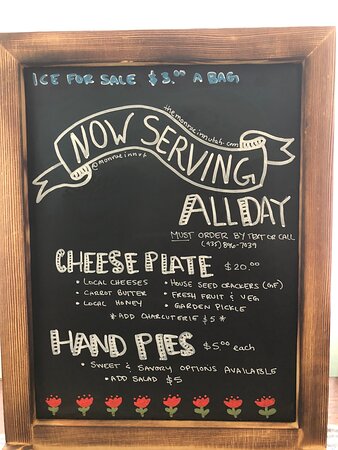 ICE FOR SALE $3.00 A BAG
themonroeinnutah.com
NOW SERVING
@monroeinnut
ALL DAY
MUST ORDER BY TEXT OR CALL
(435) 896-7039
CHEESE PLATE $20.00
• LOCAL CHEESES • HOUSE SEED CRACKERS (GF)
• CARROT BUTTER • FRESH FRUIT & VEG
• LOCAL HONEY • GARDEN PICKLE
*ADD CHARCUTERIE $5*
HAND PIES $5.00 each
• SWEET & SAVORY OPTIONS AVAILABLE
• ADD SALAD $5